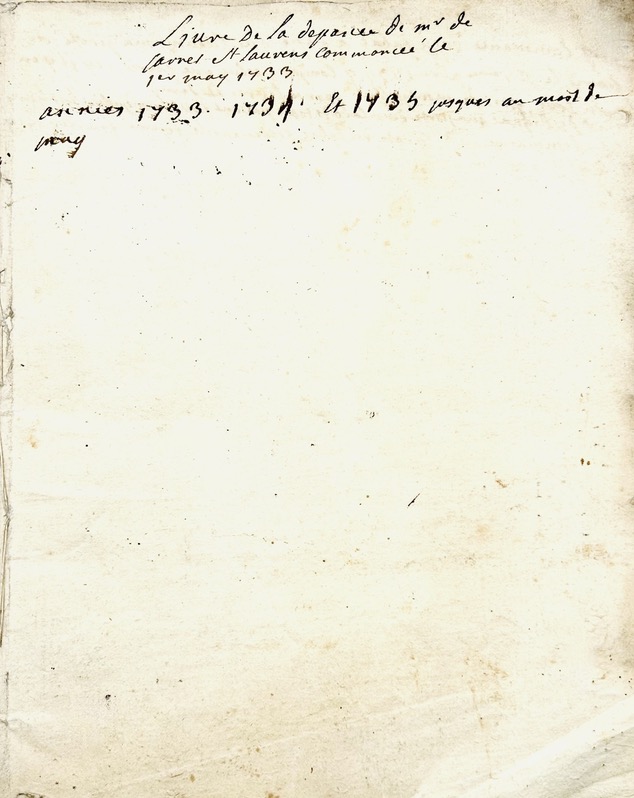 Liure de la depance de mr de
St Laurens commancéé le
1er may 1733
annees 1733. 1734. Et 1735 jusques au mois de
may